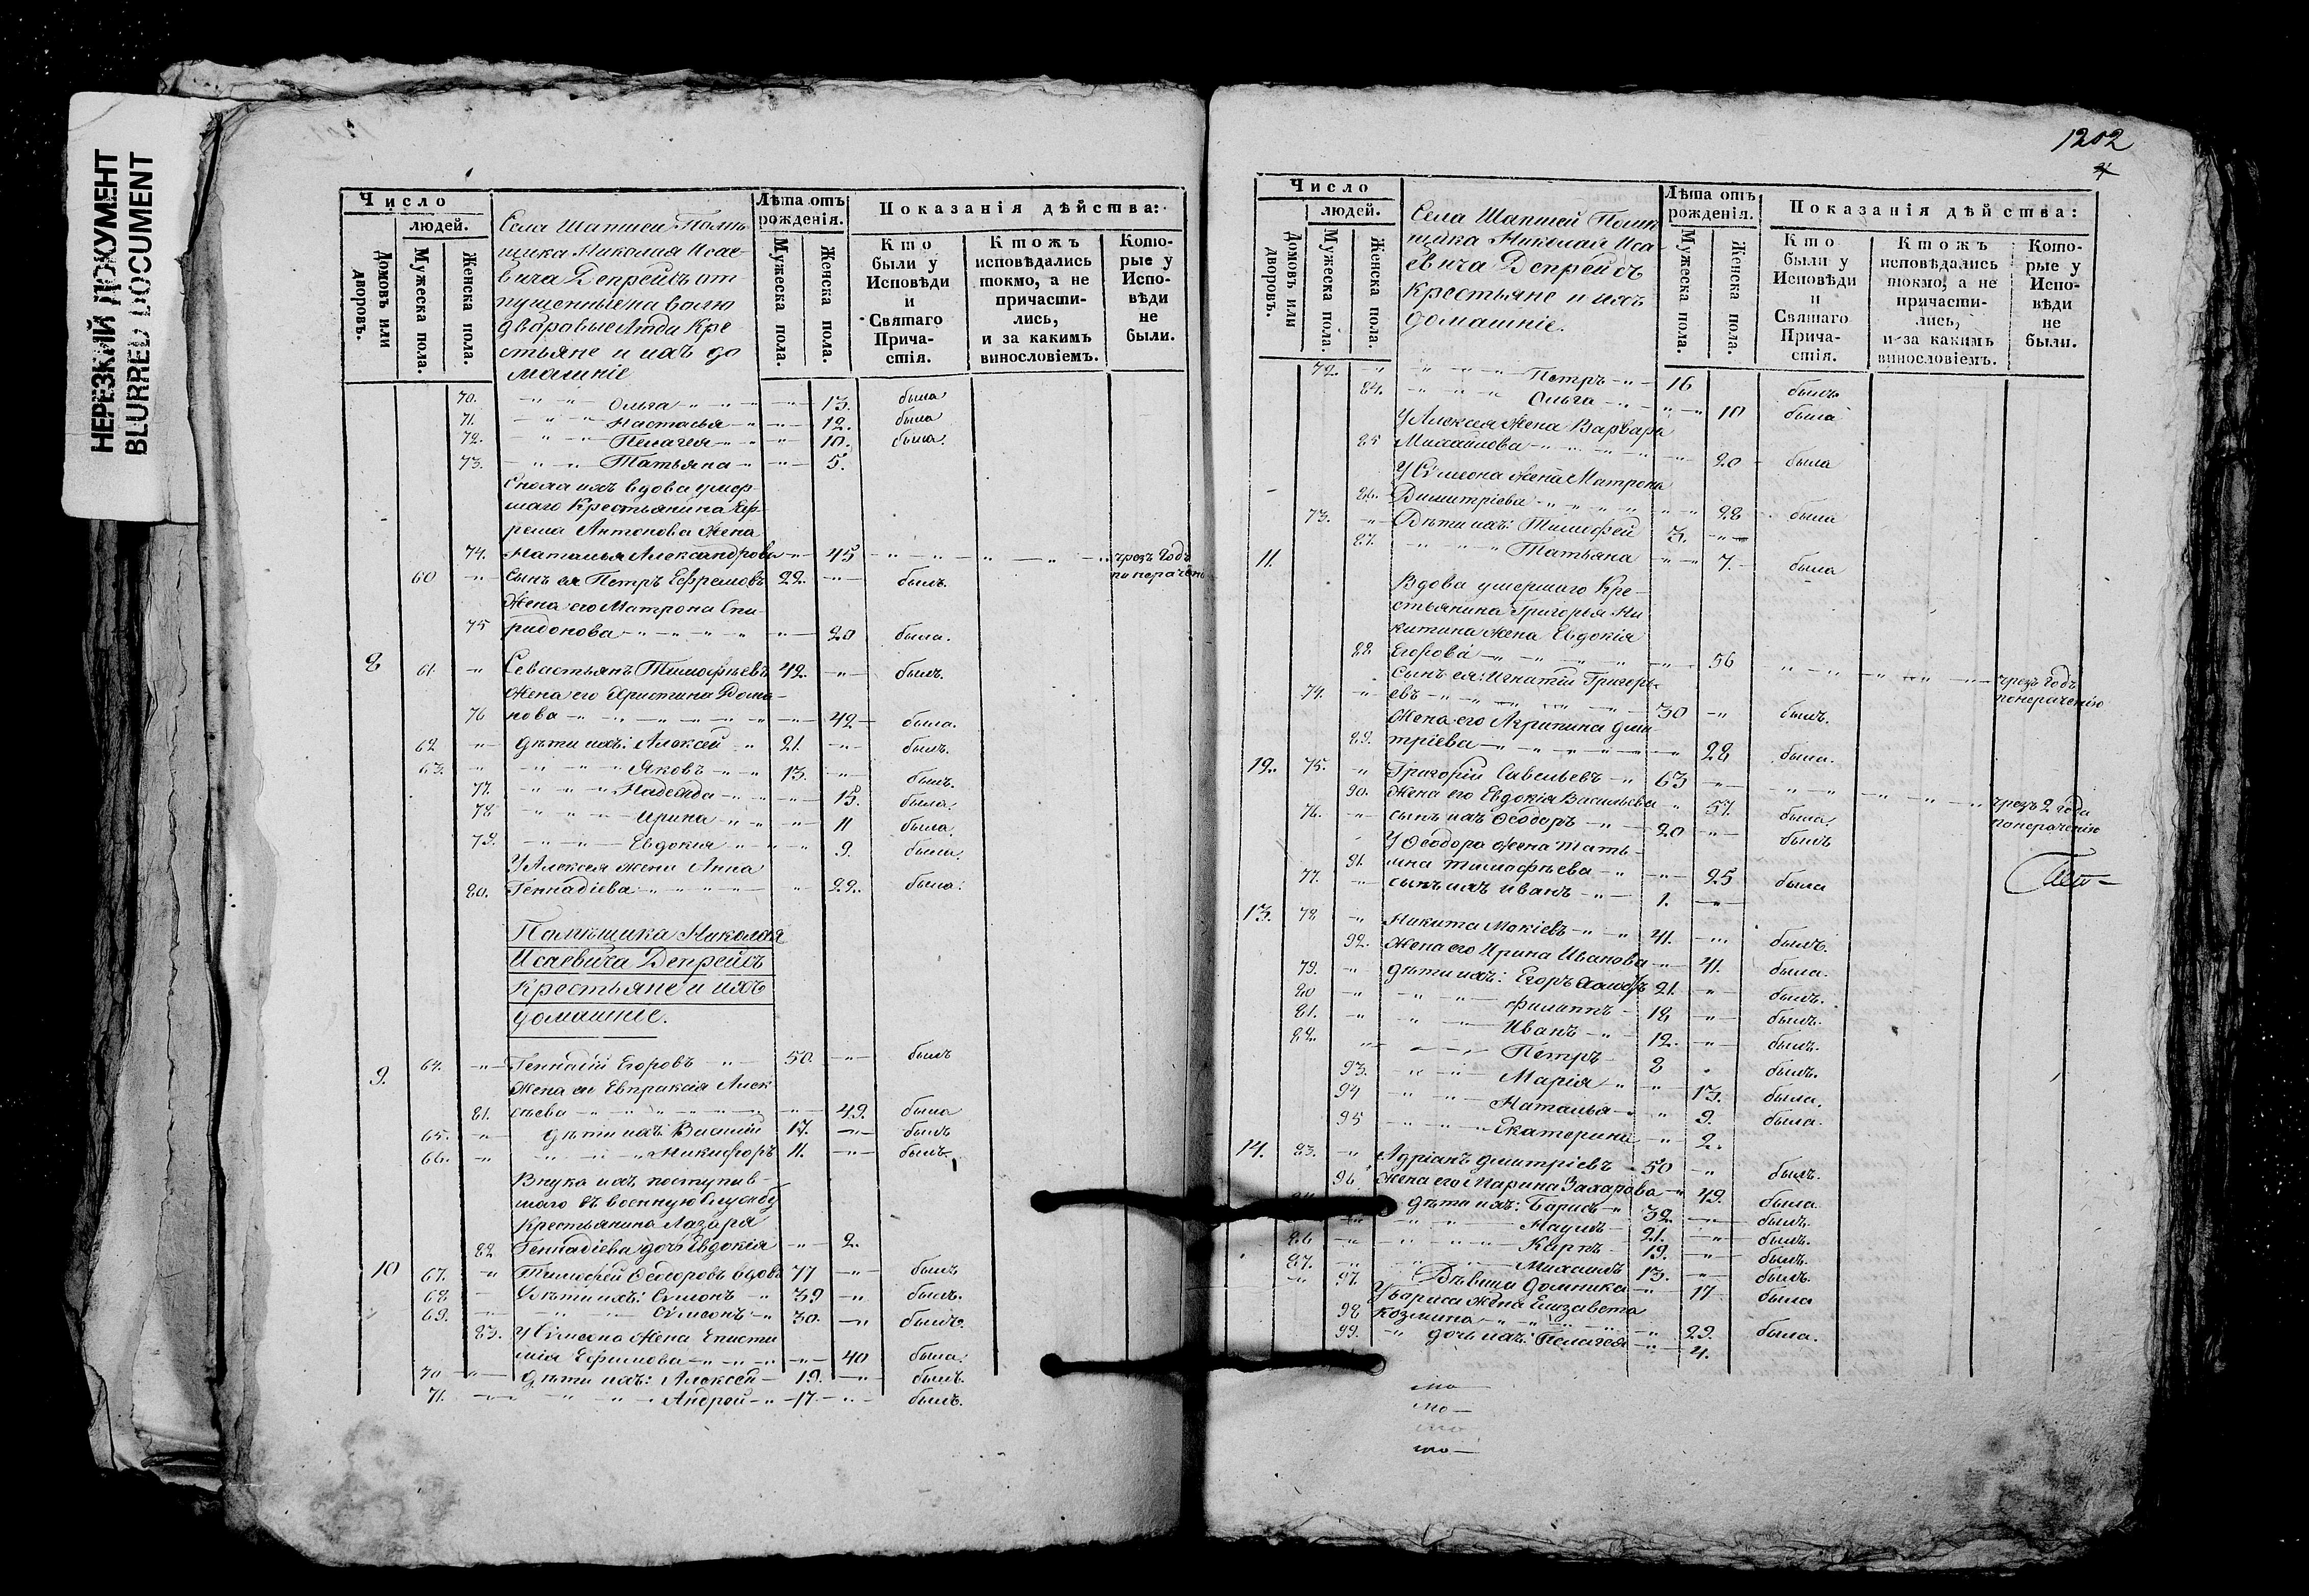 НЕРЕЗКИЙ ДОКУМЕНТ
BLURRED DOCUMENT
Число
людей.
Домовъ или дворовъ.
Мужеска пола.
Женска пола.
Села Шапшеи Помѣ-
щика Николая Исае-
вича Депрейсъ от
пущенные на волю
дваровые люди Кре
стьяне и ихъ до
машніе
Лѣта отъ рожденія.
Мужеска пола.
Женска пола.
Показанія дѣйства:
Кто были у Исповѣди и Святаго Причастія.
Ктожъ исповѣдались токмо, а не причастились, и за какимъ винословіемъ.
Которые у Исповѣди не были.
70. Ольга 13. была
71. Настасья 12. была
72. Пелагея 10. была.
73. Татьяна 5.
Сноха ихъ вдова умер
шаго Крестьянина Еф-
рема Антонова жена
74. Наталья Александрова 45 чрезъ годъ
60 Сынъ ея Петръ Ефремовъ 22. былъ.
Жена его Матрона Спи-
75 ридонова 20 была.
8 61 Севастьянъ Тимофѣевъ 42. былъ.
Жена его Христина Дома-
76 нова 42 была.
62 дѣти ихъ: Алексей 21. былъ.
63. Яковъ 13. былъ.
77. Надежда 15. была.
78 Ирина 11 была.
79. Евдокия 9. была.
У Алексея жена Анна
80. Геннадіева 22. была.
Помѣщика Николая
Исаевича Депрейсъ
Крестьяне и ихъ
домашніе.
9. 64. Геннадій Егоровъ 50. былъ
Жена ег Евпраксія Алек
81. сѣева 49. была
65. дѣти ихъ: Василій 17. былъ
66. Никифоръ 11. былъ.
Внука ихъ поступив-
шаго въ военную службу
Крестьянина Лазаря
82 Геннадіева дочь Евдокія 2.
10 67. Тимофей Ѳеодоровъ вдовъ 77 былъ
68 Дѣти ихъ: Сѵмонъ 39 былъ.
69. Сѵмеонъ 30. былъ.
83. У Сѵмеона жена Еписти
мія Ефимова 40 была.
70 дѣти ихъ: Алексей 19. былъ.
71. Андрей 17. былъ.
1202
Число
людей.
Домовъ или дворовъ.
Мужеска пола.
Женска пола.
Села Шапшей Помѣ
щика Николая Иса-
евича Депрейсъ
крестьяне и ихъ
домашніе.
Лѣта отъ рожденія.
Мужеска пола.
Женска пола.
Показанія дѣйства:
Кто были у Исповѣди и Святаго Причастія.
Ктожъ исповѣдались токмо, а не причастились, и за какимъ винословіемъ.
Которые у Исповѣди не были.
72. Петръ 16 былъ
84. Ольга 10 была
У Алексея жена Варвара
85 Михайлова 20 была
У Сѵмеона жена Матрона
86. Димитріева 28 была
73. Дѣти ихъ: Тимофей 3.
87. Татьяна 7. была
11.
Вдова умершаго Кре-
стьянина Григорья Ни
китина жена Евдокія
88 Егорова 56 чрезъ годъ
понераченію
Сынъ ея: Игнатій Григорь-
74. евъ 30 былъ.
Жена его Агрипина дми
89. тріева 28 была.
12. 75. Григорій Савельевъ 63 чрезъ 2 года
понераченію
90. Жена его Евдокія Васильева 57. была.
76. сынъ ихъ Ѳеодоръ 20 былъ
У Ѳеодора жена Тать-
91. яна Тимофѣева 25 была
77. сынъ ихъ Иванъ 1.
13. 78 Никита Мокіевъ 41. былъ.
92. Жена его Ирина Иванова 41. была.
79. дѣти ихъ: Егоръ 21. былъ.
80 Филаппъ 18 былъ.
81. Иванъ 12. былъ.
82. Петръ 8 былъ.
93. Марія 13. была.
94 Наталья 9. была.
95 Екатерина 2.
14. 83. Адріанъ дмитріевъ 50 былъ.
96. Жена его Марина Захарова 49. была.
дѣти ихъ: Борисъ 32. былъ.
Наумъ 21. былъ.
86 Карпъ 19. былъ.
87. Михаилъ 13. былъ.
97. Дѣвица Домника 17 была
У бориса жена Елизавета
98 Козмина 29. была.
99. дочь ихъ: Пелагея 4.